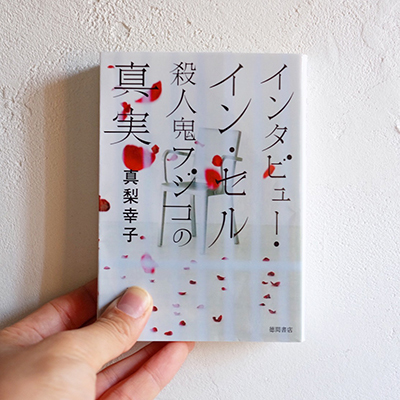 インタビュー・
イン・セル
殺人鬼フジコの
真実
真梨幸子
徳間書店